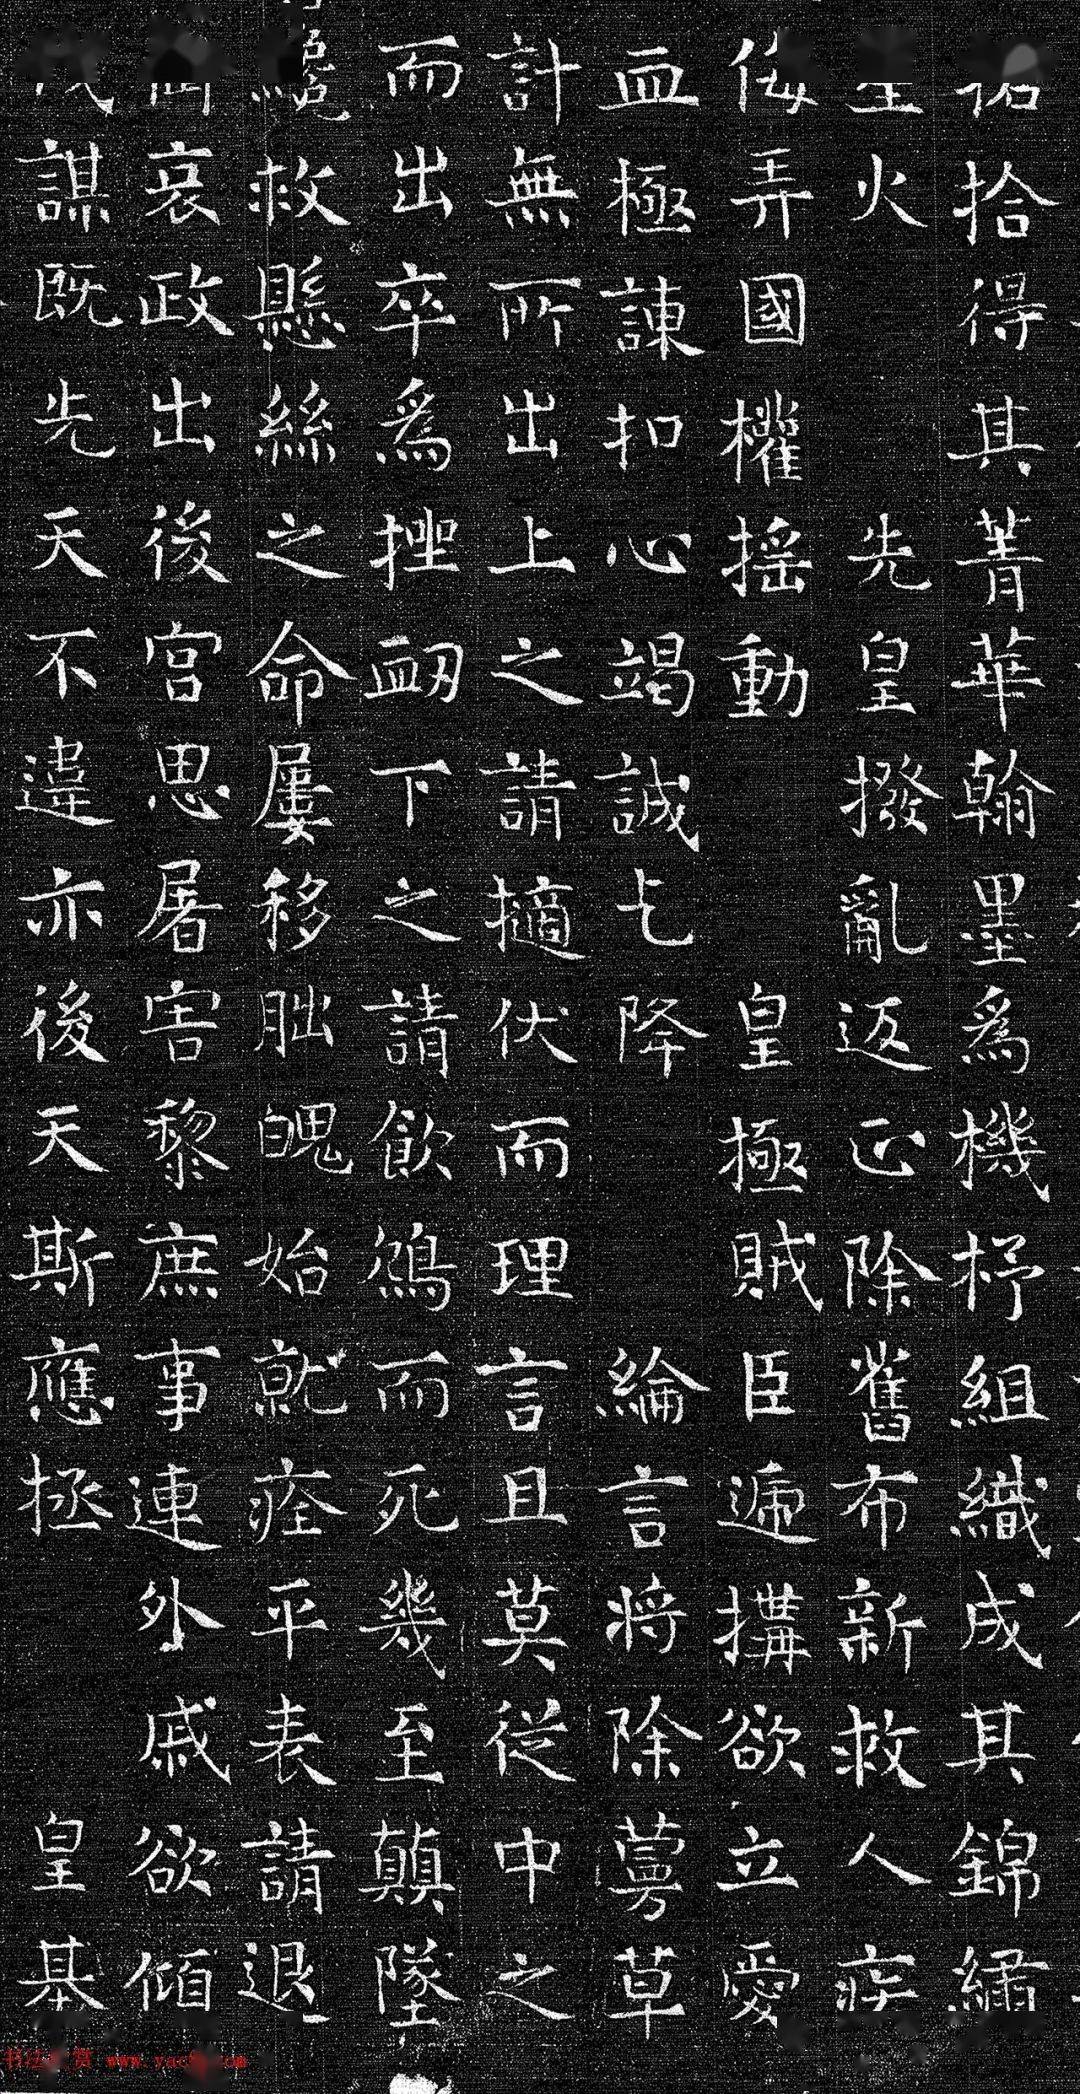 拾得其菁華翰墨為機杼組織成其錦繡
火 先皇撥亂返正除舊布新救人疾
侮弄國權搖動 皇極賊臣遞搆欲立愛
血極諫扣心竭誠乞降 綸言將除蔓草
計無所出上之請擿伏而理言且莫從中之
而出卒為挫衄下之請飲鴆而死幾至顛墜
救懸絲之命屢移朏魄始就痊平表請退
哀政出後宮思屠害黎庶事連外戚欲傾
謀既先天不違亦後天斯應拯 皇基
www.yac